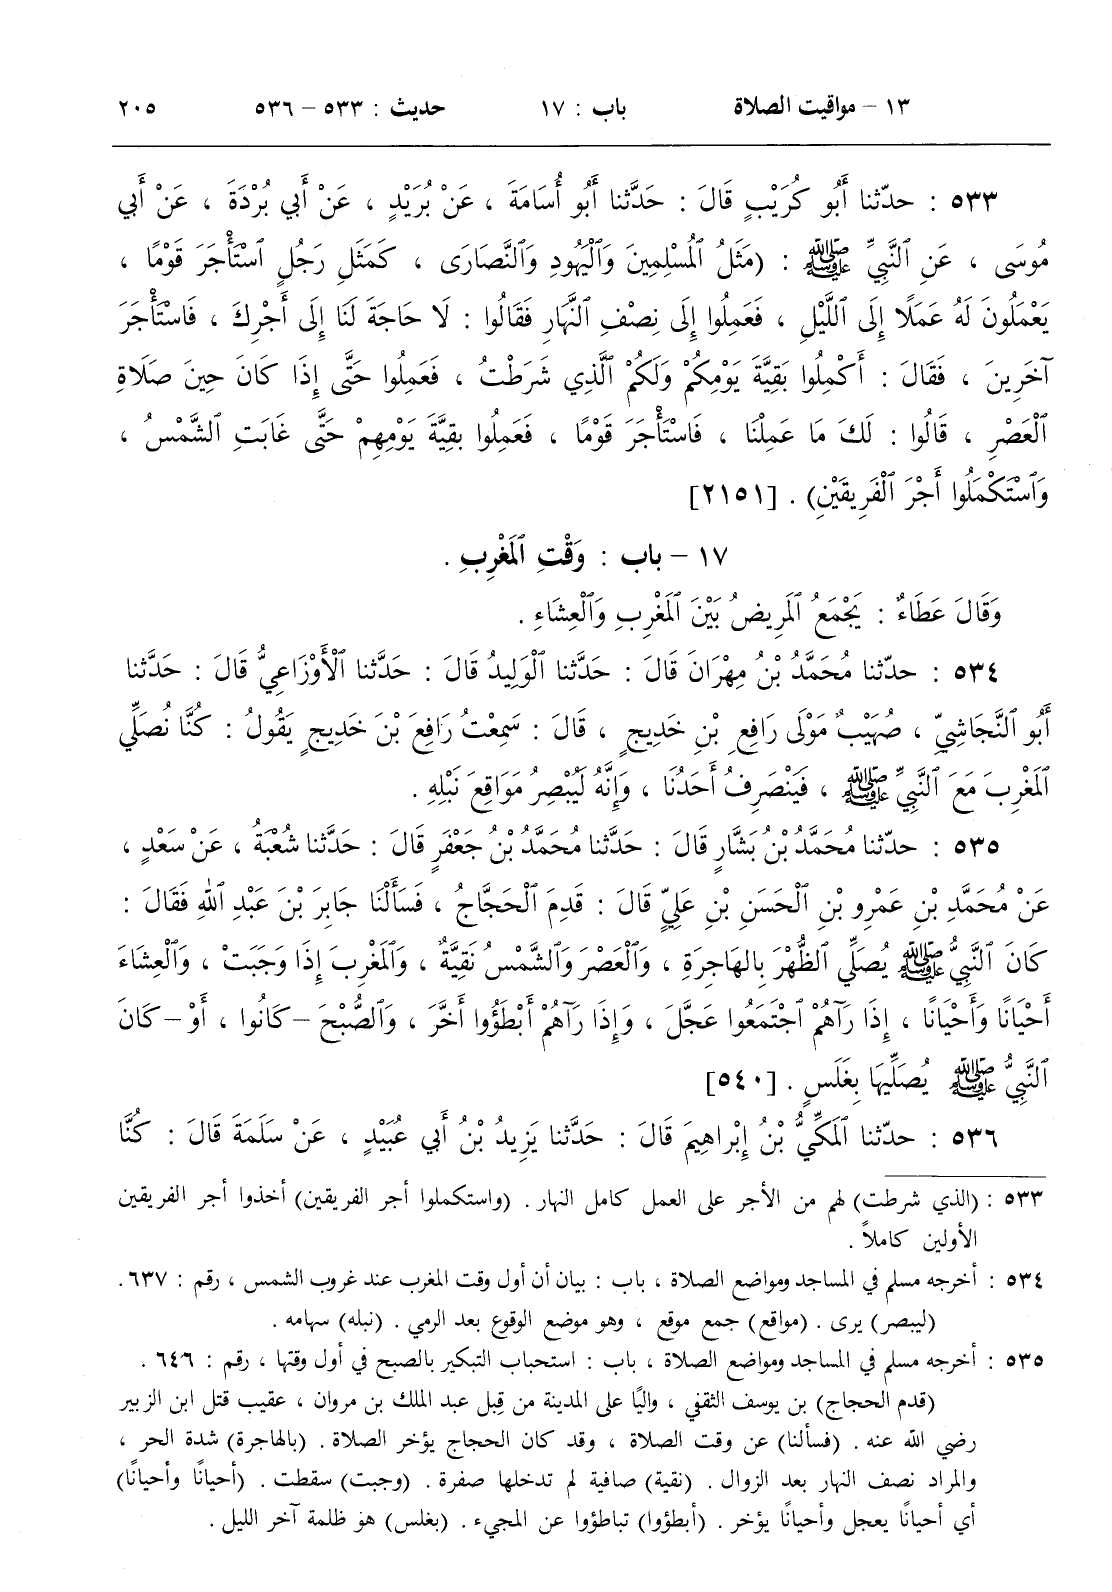 ١٣ – مواقيت الصلاة باب : ١٧ حديث : ٥٣٣ – ٥٣٦ ٢٠٥
٥٣٣ : حدّثنا أَبُو كُرَيْبٍ قَالَ : حَدَّثنا أَبُو أُسَامَةَ ، عَنْ بُرَيْدٍ ، عَنْ أَبِي بُرْدَةَ ، عَنْ أَبِي
مُوسَى ، عَنِ ٱلنَّبِيِّ ﷺ : (مَثَلُ ٱلْمُسْلِمِينَ وَٱلْيَهُودِ وَٱلنَّصَارَى ، كَمَثَلِ رَجُلٍ ٱسْتَأْجَرَ قَوْمًا ،
يَعْمَلُونَ لَهُ عَمَلًا إِلَى ٱللَّيْلِ ، فَعَمِلُوا إِلَى نِصْفِ ٱلنَّهَارِ فَقَالُوا : لَا حَاجَةَ لَنَا إِلَى أَجْرِكَ ، فَاسْتَأْجَرَ
آخَرِينَ ، فَقَالَ : أَكْمِلُوا بَقِيَّةَ يَوْمِكُمْ وَلَكُمْ ٱلَّذِي شَرَطْتُ ، فَعَمِلُوا حَتَّى إِذَا كَانَ حِينَ صَلَاةِ
ٱلْعَصْرِ ، قَالُوا : لَكَ مَا عَمِلْنَا ، فَاسْتَأْجَرَ قَوْمًا ، فَعَمِلُوا بقِيَّةَ يَوْمِهِمْ حَتَّى غَابَتِ ٱلشَّمْسُ ،
وَٱسْتَكْمَلُوا أَجْرَ ٱلْفَرِيقَيْنِ) . [٢١٥١]
١٧ – باب : وَقْتِ ٱلمَغْرِبِ .
وَقَالَ عَطَاءٌ : يَجْمَعُ ٱلمَرِيضُ بَيْنَ ٱلمَغْرِبِ وَٱلْعِشَاءِ .
٥٣٤ : حدّثنا مُحَمَّدُ بْنُ مِهْرَانَ قَالَ : حَدَّثنا ٱلْوَلِيدُ قَالَ : حَدَّثنا ٱلْأَوْزَاعِيُّ قَالَ : حَدَّثنا
أَبُو ٱلنَّجَاشِيِّ ، صُهَيْبٌ مَوْلَى رَافِعِ بْنِ خَدِيجٍ ، قَالَ : سَمِعْتُ رَافِعَ بْنَ خَدِيجٍ يَقُولُ : كُنَّا نُصَلِّي
ٱلمَغْرِبَ مَعَ النَّبِيِّ ﷺ ، فَيَنْصَرِفُ أَحَدُنَا ، وَإِنَّهُ لَيُبْصِرُ مَوَاقِعَ نَبْلِهِ .
٥٣٥ : حدّثنا مُحَمَّدُ بْنُ بَشَّارٍ قَالَ : حَدَّثنا مُحَمَّدُ بْنُ جَعْفَرٍ قَالَ : حَدَّثنا شُعْبَةُ ، عَنْ سَعْدٍ ،
عَنْ مُحَمَّدِ بْنِ عَمْرِو بْنِ ٱلْحَسَنِ بْنِ عَلِيٍّ قَالَ : قَدِمَ ٱلْحَجَّاجُ ، فَسَأَلْنَا جَابِرَ بْنَ عَبْدِ ٱللهِ فَقَالَ :
كَانَ ٱلنَّبِيُّ ﷺ يُصَلِّي ٱلظُّهْرَ بِالهَاجِرَةِ ، وَٱلْعَصْرَ وَٱلشَّمْسُ نَقِيَّةٌ ، وَٱلمَغْرِبَ إِذَا وَجَبَتْ ، وَٱلْعِشَاءَ
أَحْيَانًا وَأَحْيَانًا ، إِذَا رَآهُمْ ٱجْتَمَعُوا عَجَّلَ ، وَإِذَا رَآهُمْ أَبْطَؤُوا أَخَّرَ ، وَٱلصُّبْحَ –كَانُوا ، أَوْ– كَانَ
ٱلنَّبِيُّ ﷺ يُصَلِّيهَا بِغَلَسٍ . [٥٤٠]
٥٣٦ : حدّثنا ٱلمَكِّيُّ بْنُ إِبْراهِيمَ قَالَ : حَدَّثنا يَزِيدُ بْنُ أَبِي عُبَيْدٍ ، عَنْ سَلَمَةَ قَالَ : كُنَّا
٥٣٣ : (الذي شرطت) لهم من الأجر على العمل كامل النهار . (واستكملوا أجر الفريقين) أخذوا أجر الفريقين
الأولين كاملاً .
٥٣٤ : أخرجه مسلم في المساجد ومواضع الصلاة ، باب : بيان أن أول وقت المغرب عند غروب الشمس ، رقم : ٦٣٧ .
(ليبصر) يرى . (مواقع) جمع موقع ، وهو موضع الوقوع بعد الرمي . (نبله) سهامه .
٥٣٥ : أخرجه مسلم في المساجد ومواضع الصلاة ، باب : استحباب التبكير بالصبح في أول وقتها ، رقم : ٦٤٦ .
(قدم الحجاج) بن يوسف الثقفي ، واليًا على المدينة من قِبل عبد الملك بن مروان ، عقيب قتل ابن الزبير
رضي الله عنه . (فسألنا) عن وقت الصلاة ، وقد كان الحجاج يؤخر الصلاة . (بالهاجرة) شدة الحر ،
والمراد نصف النهار بعد الزوال . (نقية) صافية لم تدخلها صفرة . (وجبت) سقطت . (أحيانًا وأحيانًا)
أي أحيانًا يعجل وأحيانًا يؤخر . (أبطؤوا) تباطؤوا عن المجيء . (بغلس) هو ظلمة آخر الليل .